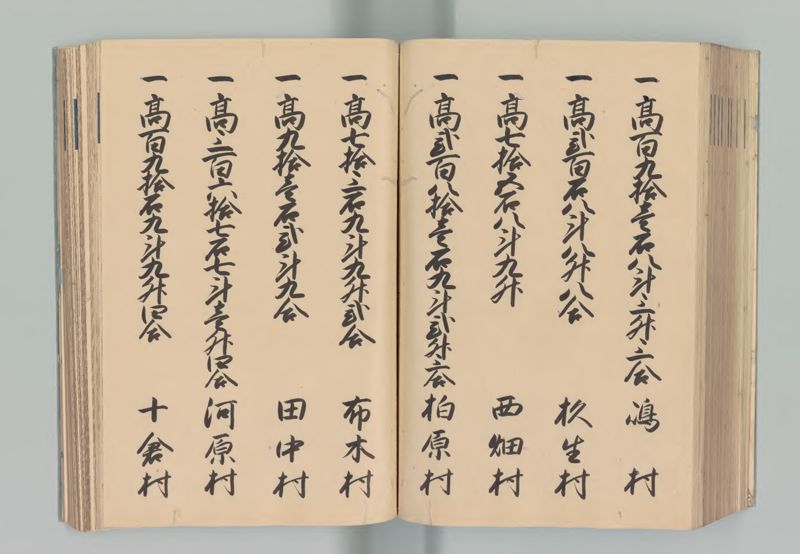 一 高百九拾壱石八斗三升三合 嶋村
一 高弐百石八斗八升八合 杦生村
一 高七拾五石八斗九升 西畑村
一 高弐百八拾壱石九斗弐升三合 柏原村
一 高七拾三石九斗九升弐合 布木村
一 高九拾壱石弐斗九合 田中村
一 高三百六拾七石七斗壱升四合 河原村
一 高百九拾石九斗九升四合 十倉村